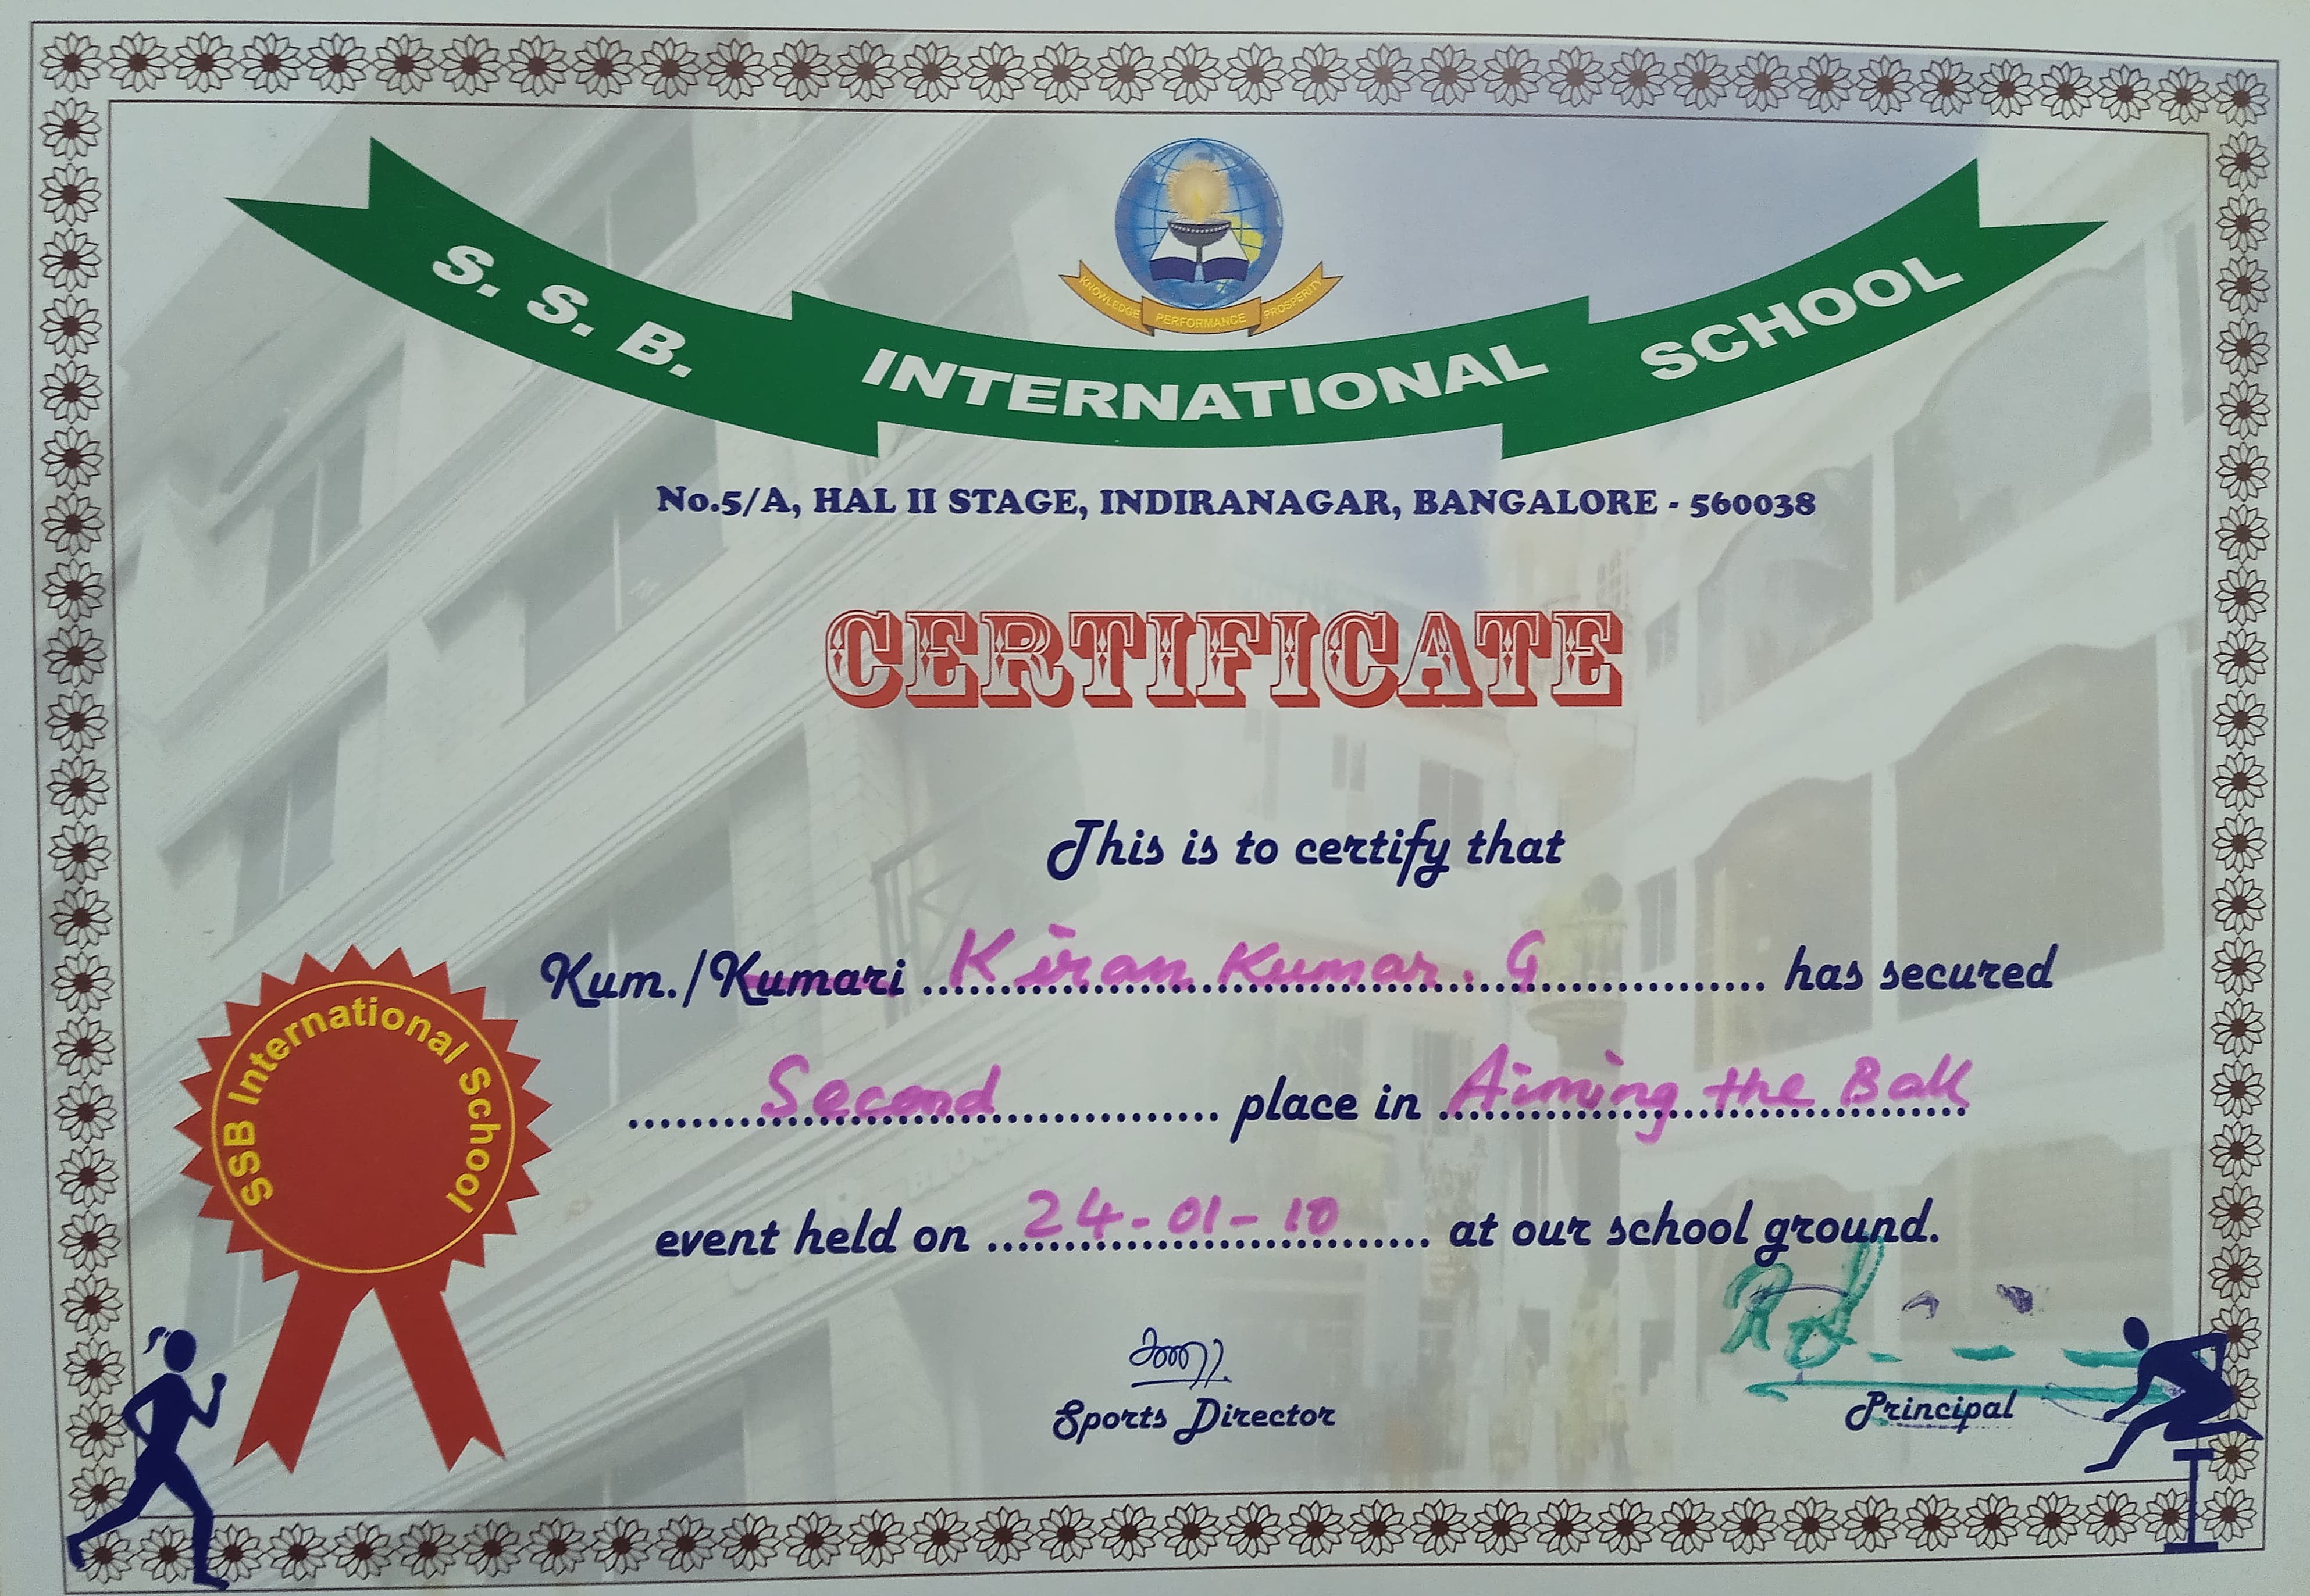 KNOWLEDGE PERFORMANCE PROSPERITY
S. S. B. INTERNATIONAL SCHOOL
No.5/A, HAL II STAGE, INDIRANAGAR, BANGALORE - 560038
CERTIFICATE
This is to certify that
Kum./Kumari Kiran Kumar. G has secured
Second place in Aiming the Ball
event held on 24-01-10 at our school ground.
SSB International School
Sports Director
Principal